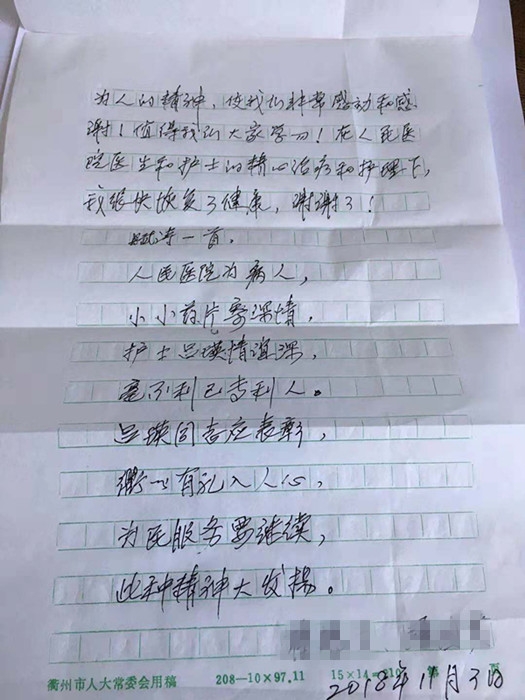 为人的精神，使我们非常感动和感
谢！值得我们大家学习！在人民医
院医生和护士的精心治疗和护理下，
我很快恢复了健康，谢谢了！
诗一首，
人民医院为病人，
小小药片寄深情，
护士吕瑛情谊深，
毫不利己专利人。
吕瑛同志应表彰，
衢州有礼入人心，
为民服务要继续，
此种精神大发扬。
衢州市人大常委会用稿 208—10×97.11 15×14=210 第 页
2018年11月3日